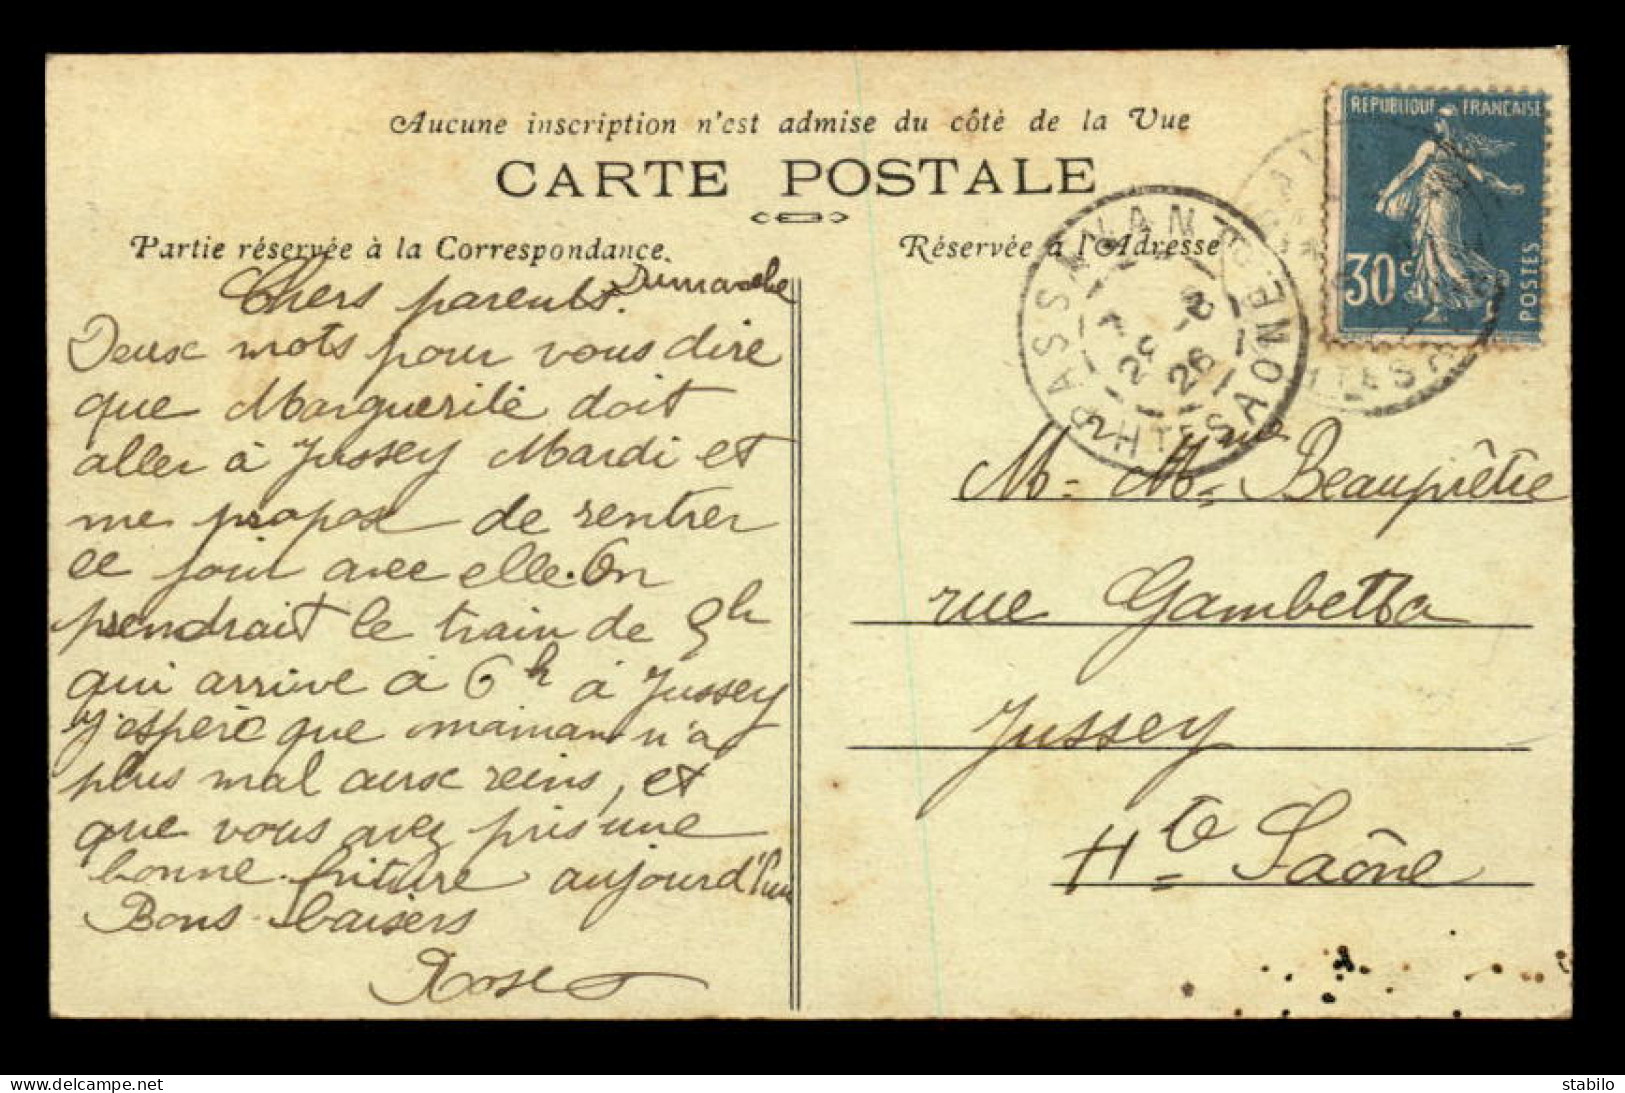 Aucune inscription n'est admise du côté de la Vue
CARTE POSTALE
Partie réservée à la Correspondance.
Réservée à l'Adresse
REPUBLIQUE FRANCAISE
30c
POSTES
PASSAVANT
HTE SAONE
26
Dimanche
Chers parents.
Deux mots pour vous dire
que Marguerite doit
aller à Jussey Mardi et
me propose de rentrer
ce jour avec elle. On
prendrait le train de 5h
qui arrive à 6h à Jussey
J'espère que maman n'a
plus mal aux reins, et
que vous avez pris une
bonne friture aujourd'hui
Bons baisers
Rose
M= Mme Beauprêtre
rue Gambetta
Jussey
Hte Saône
delcampe.net
stabilo